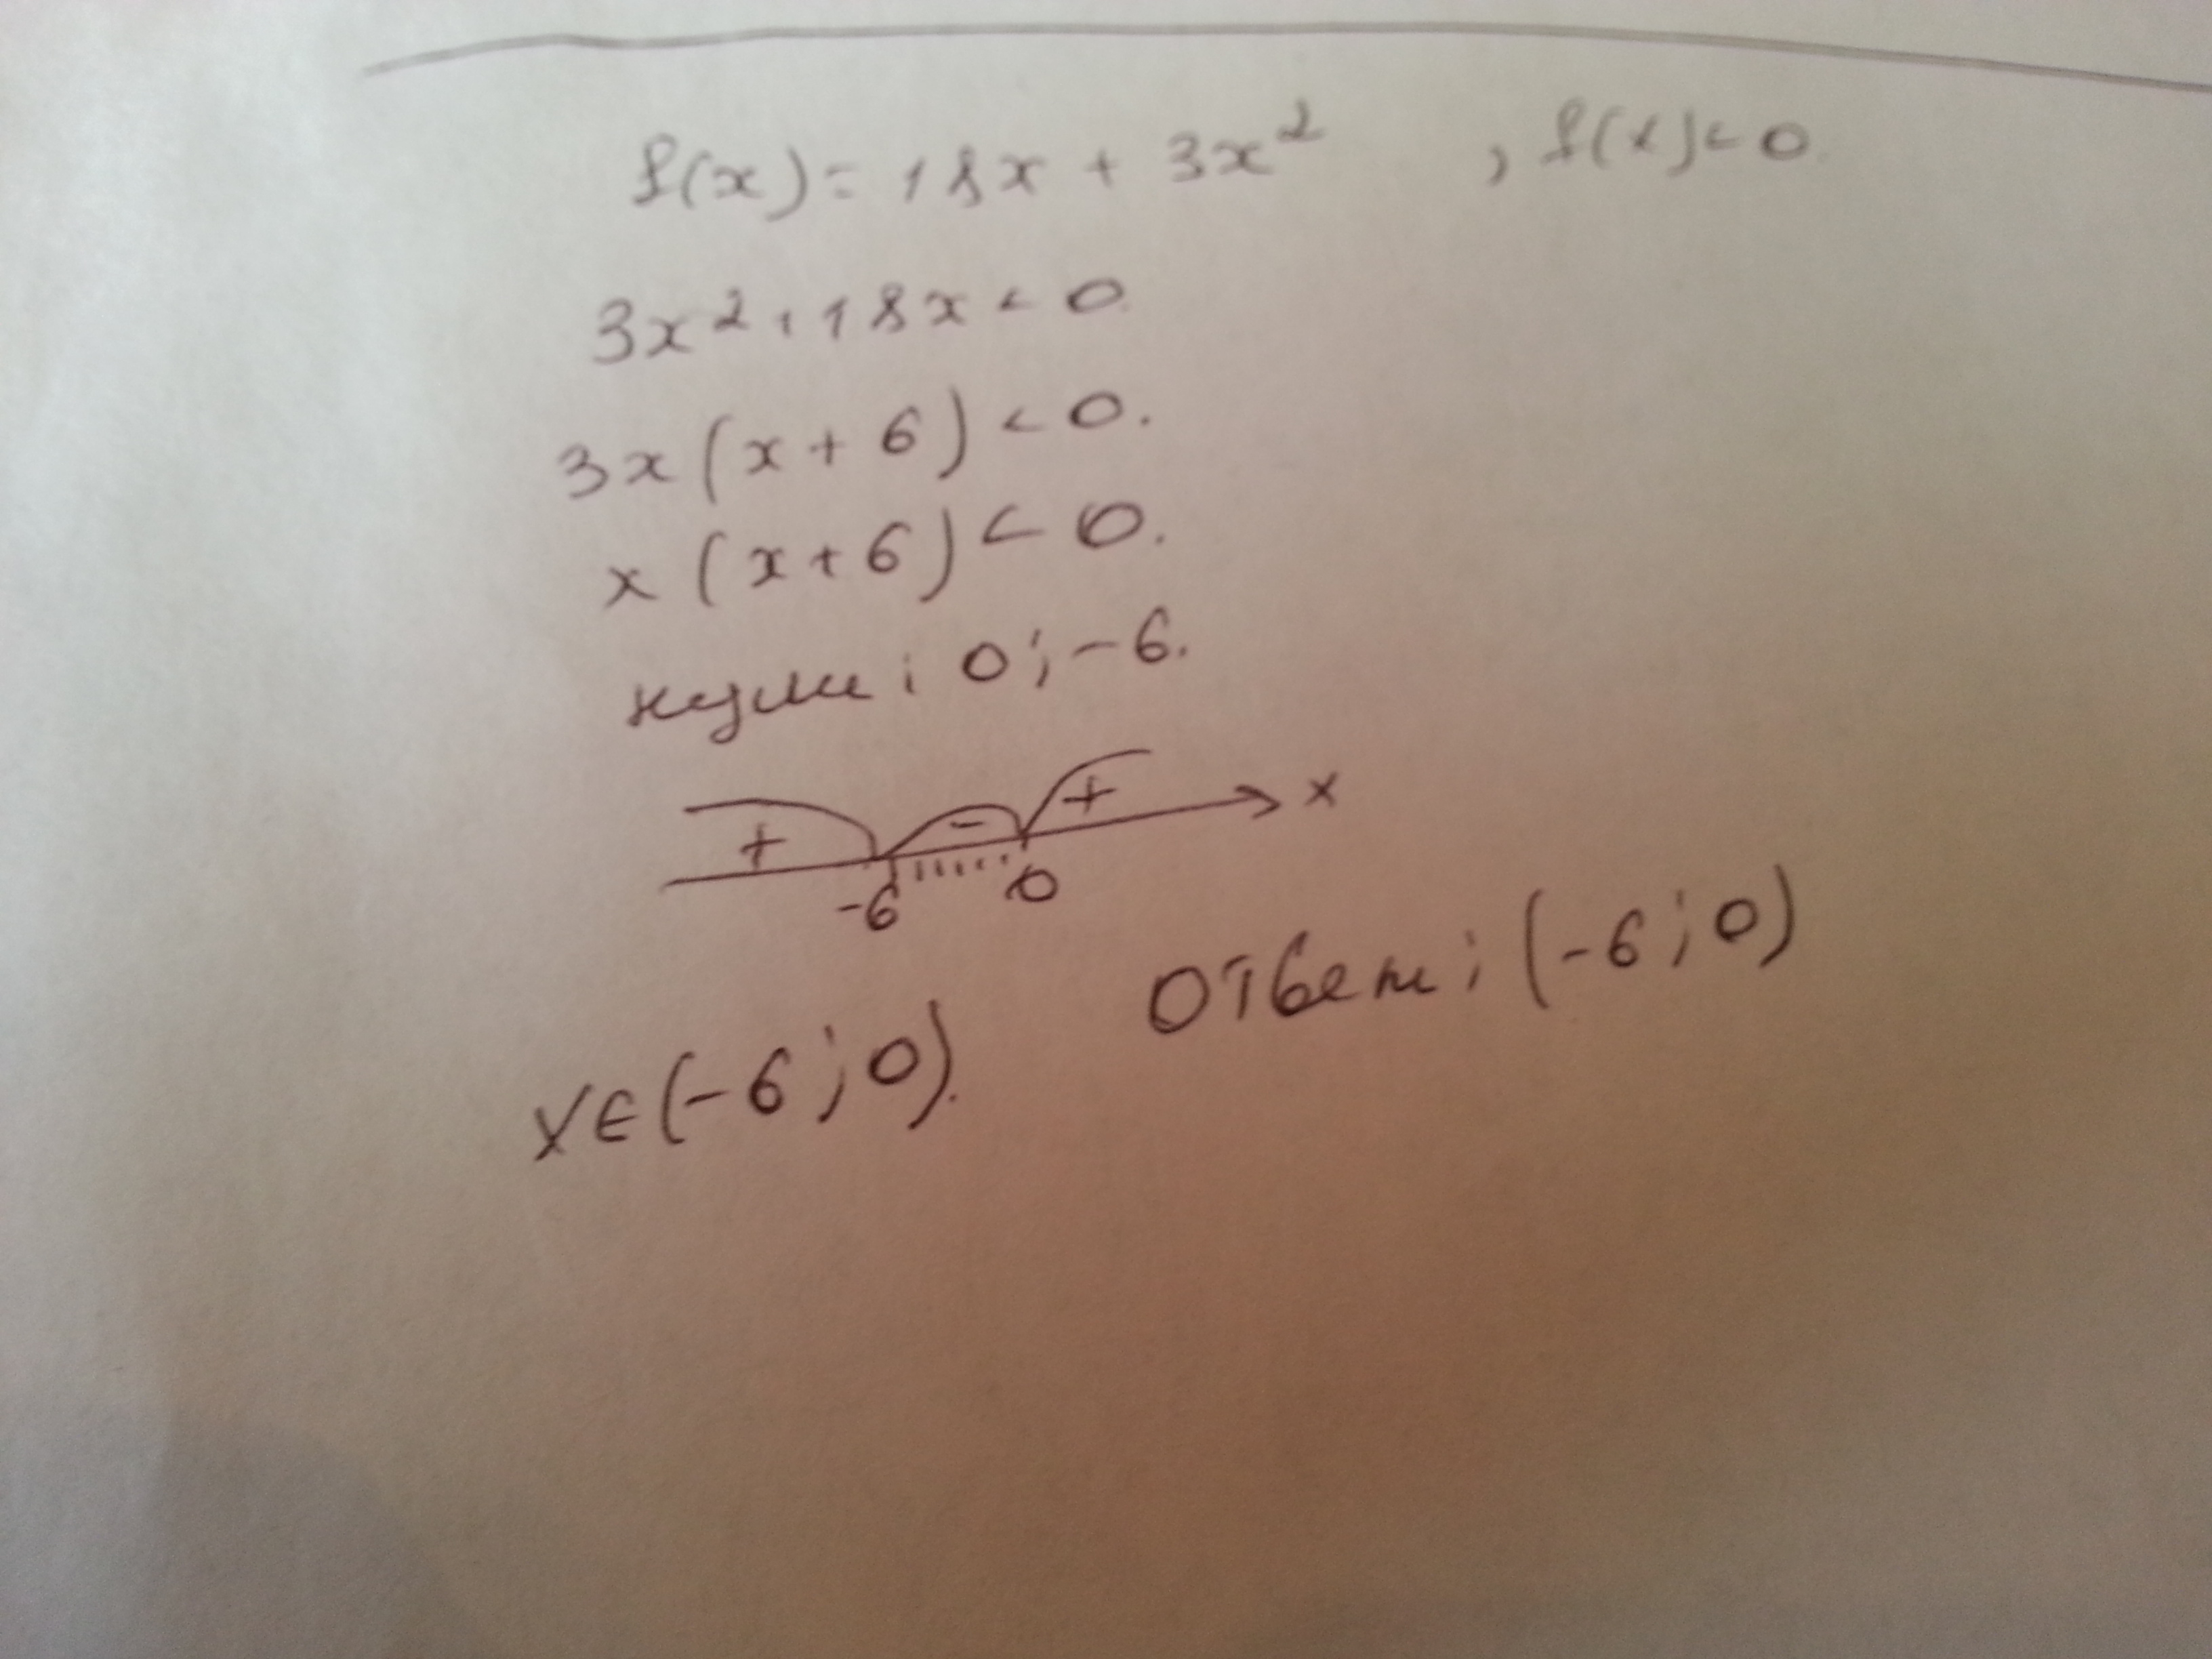 f(x) = 18x + 3x² , f(x) < 0
3x² + 18x < 0
3x(x + 6) < 0.
x(x + 6) < 0.
нули: 0; -6.
+ - + x
-6 0
Ответ: (-6; 0)
x∈(-6; 0).